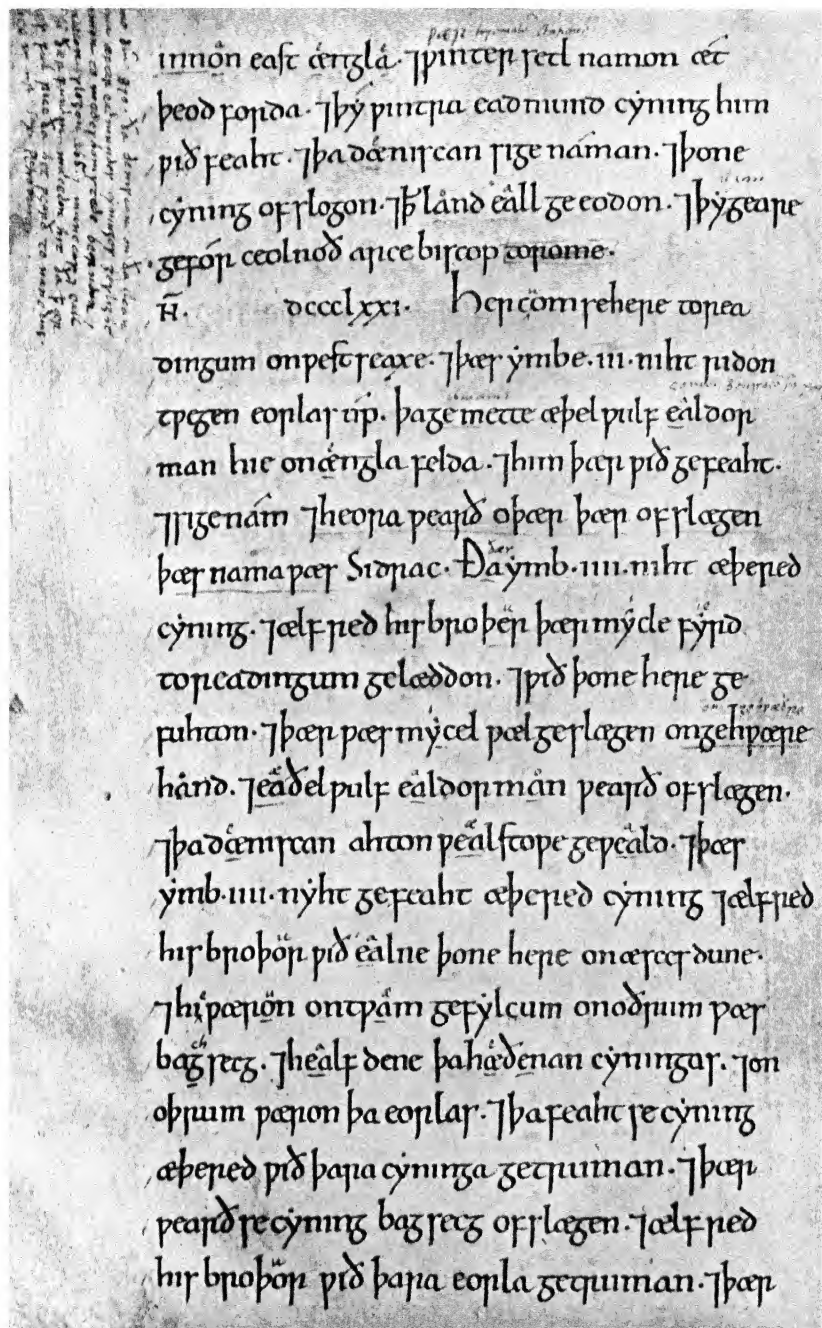 innon east ængla· ⁊ƿinter setl namon æt
þeod forda· ⁊þẏ ƿintra eadmund cẏning him
ƿið feaht· ⁊þa dæniscan sige náman· ⁊þone
cẏning ofslogon· ⁊ꝥ lånd eâll ge eodon· ⁊þẏgeare
gefór ceolnoð arce biscop torome·
N̄· dccclxxi· Her com sehere torea
dingum onƿest seaxe· ⁊þæs ẏmbe·iii·niht ridon
tƿegen eorlas úp· þagemette æþel ƿulf ealdor
man hie onængla felda· ⁊him þær ƿið gefeaht·
⁊sigenám ⁊heora ƿearð oþær þær of slægen
þær namaƿær Sidrac· Ðaẏmb·iiii·niht æþered
cẏning· ⁊ælfred his broþer þær mẏcle fẏrd
toreadingum gelæddon· ⁊ƿið þone here ge
fuhton· ⁊þær ƿæs mẏcel ƿælgeslægen ongehƿære
hånd· ⁊eaðelƿulf ealdorman ƿearð ofslægen·
⁊þadæniscan ahton ƿealstoƿegeƿeald· ⁊þæs
ẏmb·iiii·nẏht gefeaht æþered cẏning ⁊ælfred
his broþor ƿið ealne þone here onæscesdune·
⁊hi ƿæron ontƿam gefẏlcum onoðrum ƿæs
bagsecg· ⁊healf dene þahæðenan cẏningas· ⁊on
oþrum ƿæron þa eorlas· ⁊þafeaht se cẏning
æþered ƿið þara cẏninga getruman· ⁊þær
ƿearð se cẏning bagsecg ofslægen· ⁊ælfred
his broþor ƿið þara eorla getruman· ⁊þær